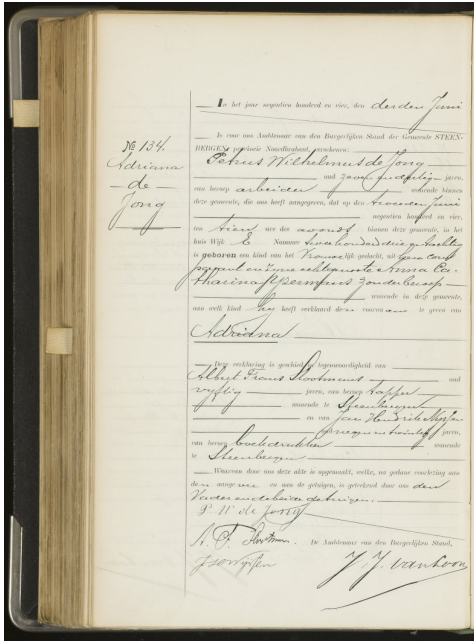 No 134.
Adriana
de
Jong
In het jaar negentien honderd en vier, den derden Juni
Is voor ons Ambtenaar van den Burgerlijken Stand der Gemeente STEEN-
BERGEN, provincie Noordbrabant, verschenen:
Petrus Wilhelmus de Jong
oud zeven en dertig jaren,
van beroep arbeider wonende binnen
deze gemeente, die ons heeft aangegeven, dat op den tweeden Juni
negentien honderd en vier,
ten tien ure des avonds binnen deze gemeente, in het
huis Wijk E Nummer tweehonderd drie en tachtig
is geboren een kind van het Vrouwelijk geslacht, uit hem com-
parant en zijne echtgenoote Anna Ca-
tharina zonder beroep
wonende in deze gemeente,
aan welk kind hij heeft verklaard den voornaam te geven van
Adriana
Deze verklaring is geschied in tegenwoordigheid van
Albert Frans Slootmans oud
vyftig jaren, van beroep tapper
wonende te Steenbergen
en van Jan Hendrik
oud negen en twintig jaren,
van beroep boekdrukker wonende
te Steenbergen
Waarvan door ons deze akte is opgemaakt, welke, na gedane voorlezing aan
den aangever en aan de getuigen, is geteekend door ons den
Vader en de beide getuigen.
P W de Jong
A. F. Slootmans. De Ambtenaar van den Burgerlijken Stand,
J. J. van Loon